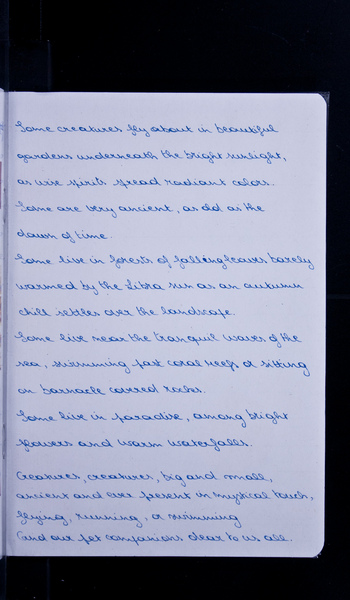 Some creatures fly about in beautiful
gardens underneath the bright sunlight,
as wise spirits spread radiant colors.
Some are very ancient, as old as the
dawn of time.
Some live in forests of falling leaves barely
warmed by the Libra sun as an autumn
chill settles over the landscape.
Some live near the tranquil waves of the
sea, swimming past coral reefs or sitting
on barnacle covered rocks.
Some live in paradise, among bright
flowers and warm waterfalls.
Creatures, creatures, big and small,
ancient and ever present in mystical touch,
flying, running, or swimming
and our pet companions dear to us all.